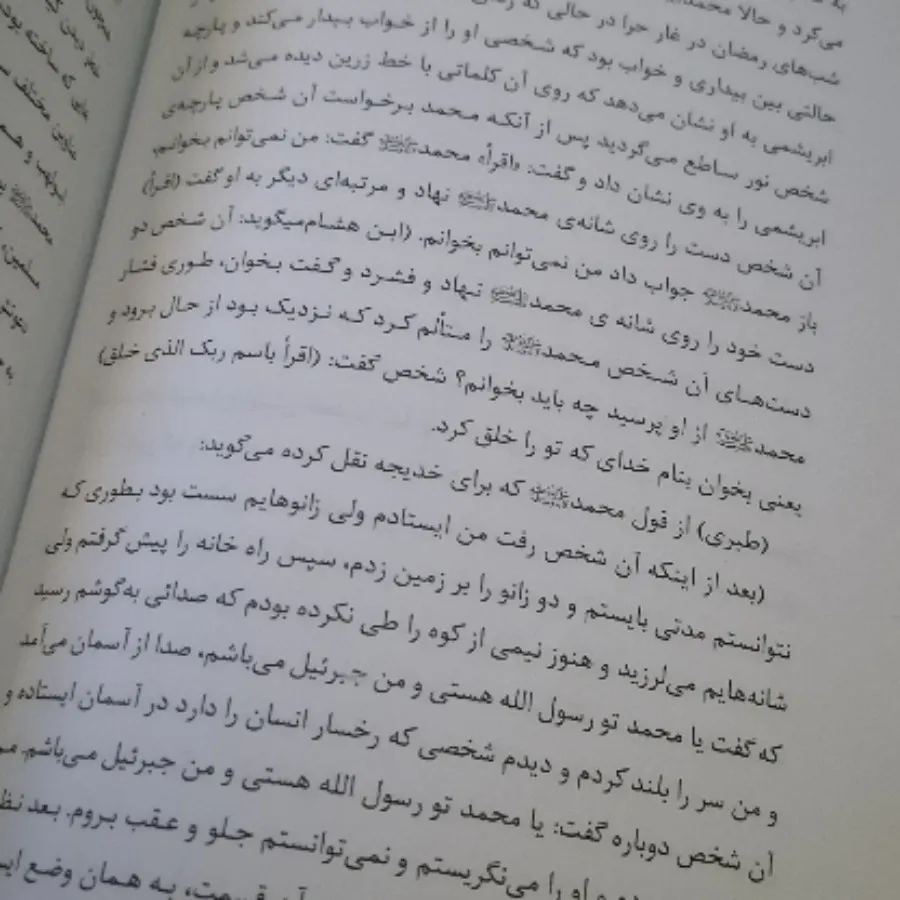 می‌کرد و حالا محمد
شب‌های رمضان در غار حرا در حالی که
حالتی بین بیداری و خواب بود که شخصی او را از خواب بیدار می‌کند و پارچه
ابریشمی به او نشان می‌دهد که روی آن کلماتی با خط زرین دیده می‌شد و از آن
شخص نور ساطع می‌گردید پس از آنکه محمد برخواست آن شخص پارچه‌ی
ابریشمی را به وی نشان داد و گفت: «اقرأ» محمدﷺ گفت: من نمی‌توانم بخوانم،
آن شخص دست را روی شانه‌ی محمدﷺ نهاد و مرتبه‌ای دیگر به او گفت (اقرأ)
باز محمدﷺ جواب داد من نمی‌توانم بخوانم. (ابن هشام میگوید: آن شخص دو
دست خود را روی شانه ی محمدﷺ نهاد و فشرد و گفت بخوان، طوری فشار
دست‌های آن شخص محمدﷺ را متألم کرد که نزدیک بود از حال برود و
محمدﷺ از او پرسید چه باید بخوانم؟ شخص گفت: (اقرأ باسم ربک الذی خلق)
یعنی بخوان بنام خدای که تو را خلق کرد.
(طبری) از قول محمدﷺ که برای خدیجه نقل کرده می‌گوید:
(بعد از اینکه آن شخص رفت من ایستادم ولی زانوهایم سست بود بطوری که
نتوانستم مدتی بایستم و دو زانو را بر زمین زدم، سپس راه خانه را پیش گرفتم ولی
شانه‌هایم می‌لرزید و هنوز نیمی از کوه را طی نکرده بودم که صدائی به‌گوشم رسید
که گفت یا محمد تو رسول الله هستی و من جبرئیل می‌باشم، صدا از آسمان می‌آمد
و من سر را بلند کردم و دیدم شخصی که رخسار انسان را دارد در آسمان ایستاده و
آن شخص دوباره گفت: یا محمد تو رسول الله هستی و من جبرئیل می‌باشم.
و او را می‌نگریستم و نمی‌توانستم جلو و عقب بروم. بعد
قسمت، به همان وضع